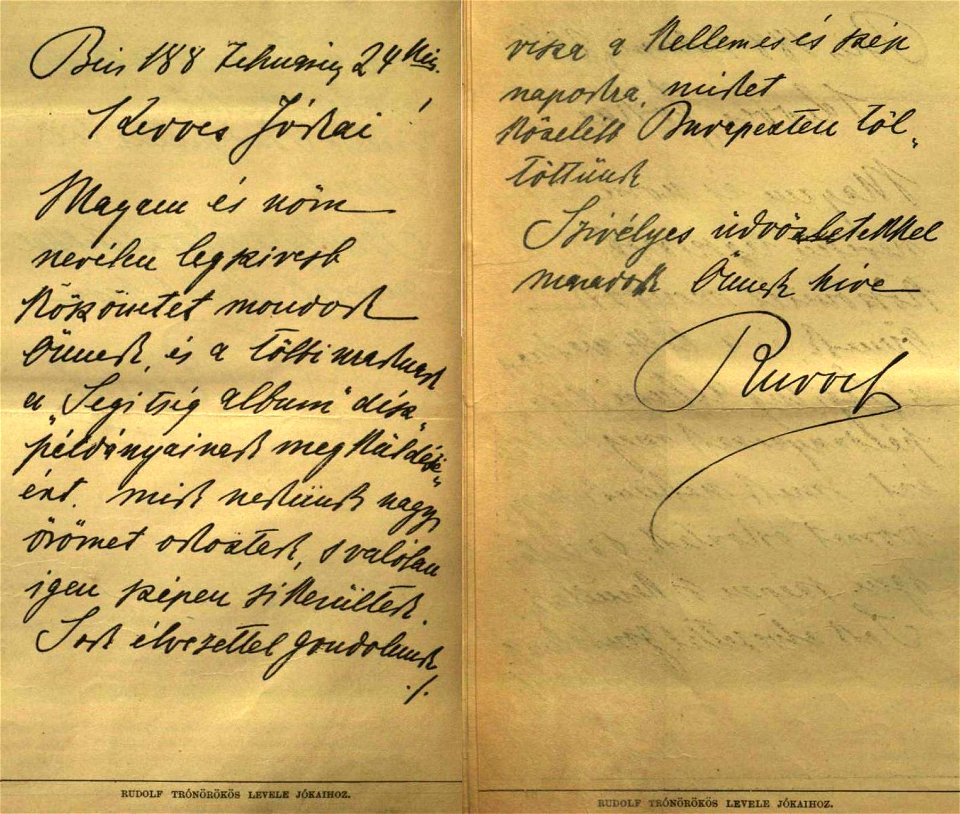 Bécs 188 Február 24kén.
Kedves Jókai!
Magam és nőm
nevében legszivesb
köszönetet mondok
Önnek, és a többieknek
a „Segitség album” disz„
példányainak megküldésé„
ért. mik nekünk nagy
örömet okoztak, s valóban
igen szépen sikerültek.
Sok élvezettel gondolunk
./.
RUDOLF TRÓNÖRÖKÖS LEVELE JÓKAIHOZ.
visza a kellemes és szép
napokra, miket
közelébb Budapesten töl„
töttünk
Szivélyes üdvözletekkel
maradok Önnek hive
Rudolf
RUDOLF TRÓNÖRÖKÖS LEVELE JÓKAIHOZ.